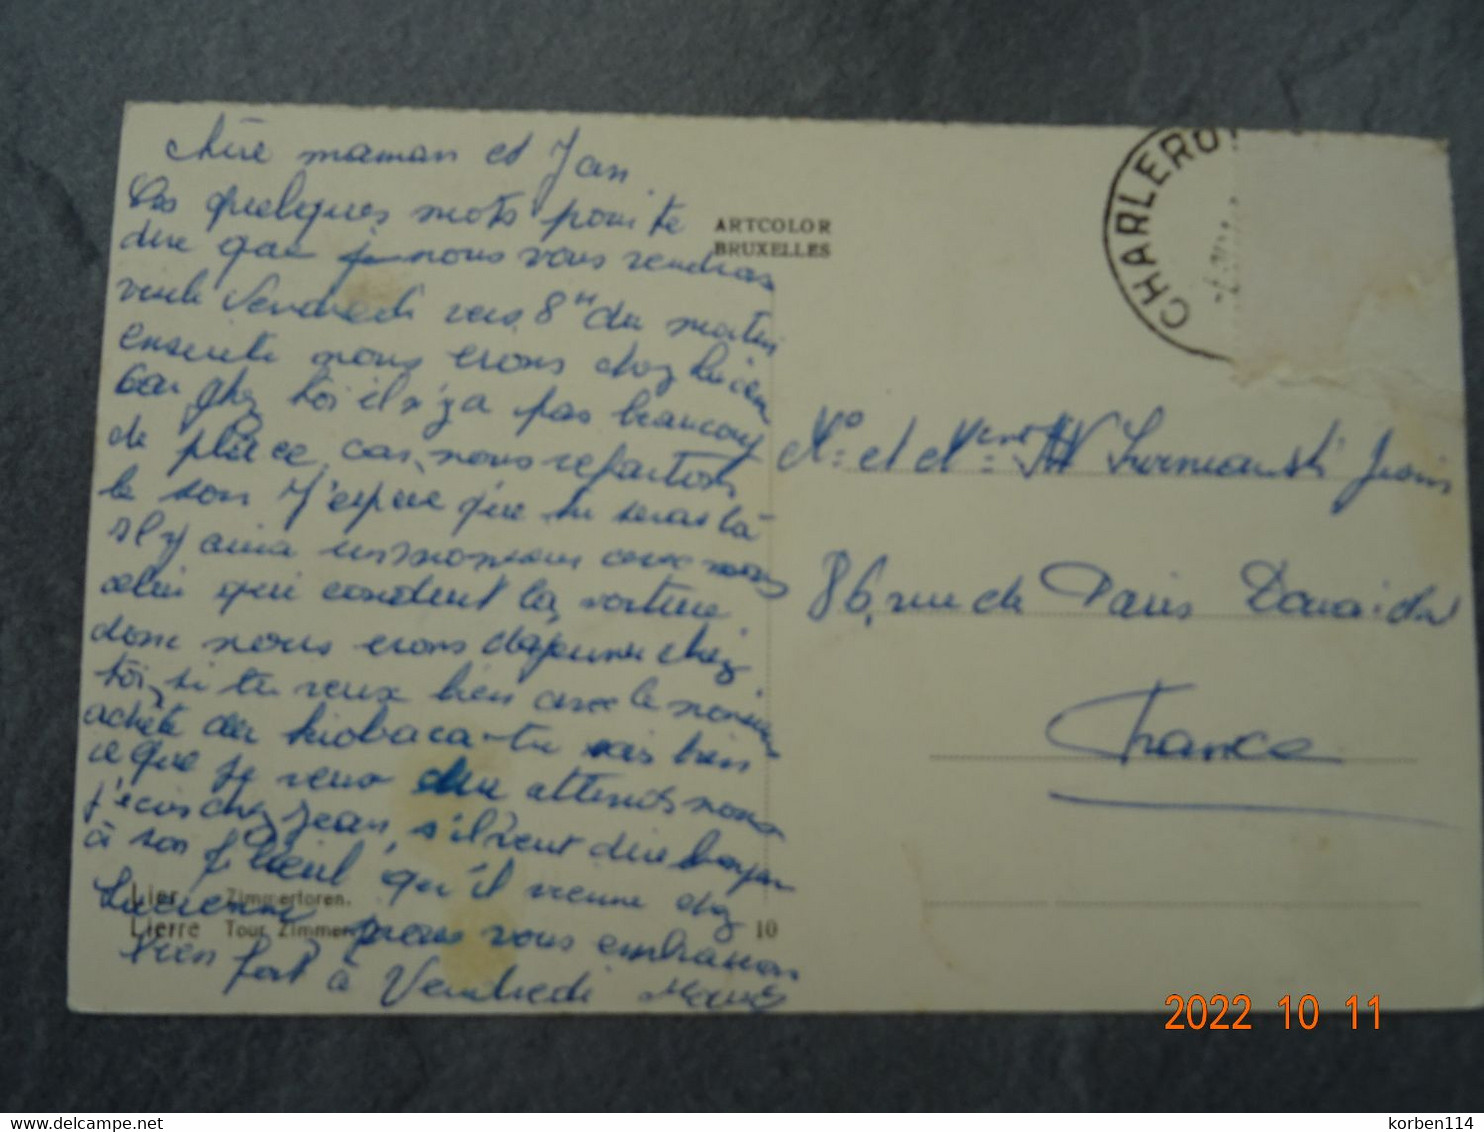 Chère maman et Jan
Ces quelques mots pour te
dire que je nous vous rendras
visite Vendredi vers 8 H du matin
ensuite nous irons chez Lucien
car chez toi il n'y a pas beaucoup
de place, car nous repartons
le soir J'espère que tu seras là
il y aura un monsieur avec nous
celui qui conduit la voiture
donc nous irons déjeuner chez
toi, si tu veux bien avec le monsieur
achète du tu sais bien
ce que je veux dire attends nous
chez Jean, s'il veut dire bonjour
à son filleul qu'il vienne chez
Lucienne nous vous embrassons
bien fort à Vendredi
ARTCOLOR
BRUXELLES
Lier Zimmertoren.
Lierre Tour Zimmer
10
CHARLEROI
Mr et Mme
86, rue de Paris
France
2022 10 11
https://www.delcampe.net
korben114